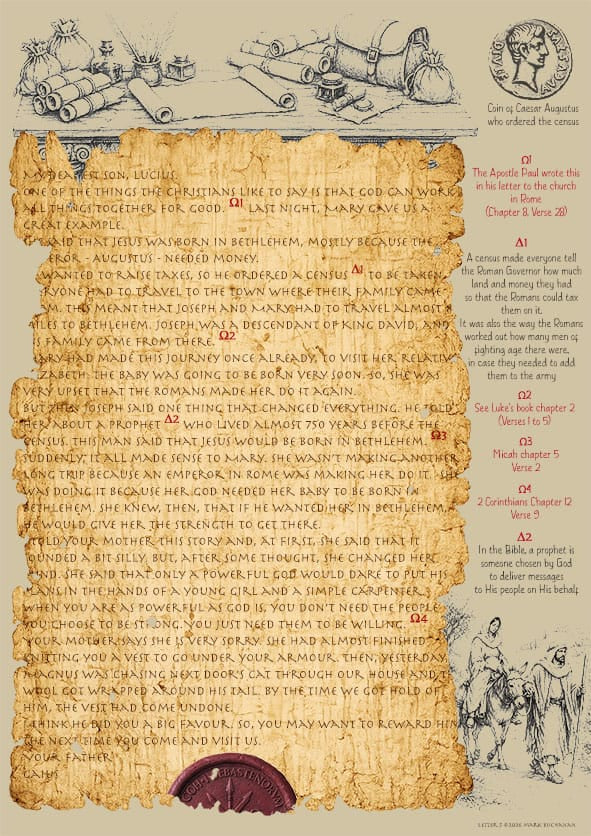 MY DEAREST SON, LUCIUS.
ONE OF THE THINGS THE CHRISTIANS LIKE TO SAY IS THAT GOD CAN WORK
ALL THINGS TOGETHER FOR GOOD. Ω1 LAST NIGHT, MARY GAVE US A
GREAT EXAMPLE.
SAID THAT JESUS WAS BORN IN BETHLEHEM, MOSTLY BECAUSE THE
ROR - AUGUSTUS - NEEDED MONEY.
WANTED TO RAISE TAXES, SO HE ORDERED A CENSUS Δ1 TO BE TAKEN.
RYONE HAD TO TRAVEL TO THE TOWN WHERE THEIR FAMILY CAME
M. THIS MEANT THAT JOSEPH AND MARY HAD TO TRAVEL ALMOST
ILES TO BETHLEHEM. JOSEPH WAS A DESCENDANT OF KING DAVID, AND
IS FAMILY CAME FROM THERE. Ω2
ARY HAD MADE THIS JOURNEY ONCE ALREADY, TO VISIT HER RELATIV
ZABETH. THE BABY WAS GOING TO BE BORN VERY SOON. SO, SHE WAS
VERY UPSET THAT THE ROMANS MADE HER DO IT AGAIN.
BUT THEN JOSEPH SAID ONE THING THAT CHANGED EVERYTHING. HE TOLD
HER ABOUT A PROPHET Δ2 WHO LIVED ALMOST 750 YEARS BEFORE THE
CENSUS. THIS MAN SAID THAT JESUS WOULD BE BORN IN BETHLEHEM. Ω3
SUDDENLY, IT ALL MADE SENSE TO MARY. SHE WASN'T MAKING ANOTHER
LONG TRIP BECAUSE AN EMPEROR IN ROME WAS MAKING HER DO IT. SHE
WAS DOING IT BECAUSE HER GOD NEEDED HER BABY TO BE BORN IN
BETHLEHEM. SHE KNEW, THEN, THAT IF HE WANTED HER IN BETHLEHEM,
HE WOULD GIVE HER THE STRENGTH TO GET THERE.
I TOLD YOUR MOTHER THIS STORY AND, AT FIRST, SHE SAID THAT IT
OUNDED A BIT SILLY. BUT, AFTER SOME THOUGHT, SHE CHANGED HER
IND. SHE SAID THAT ONLY A POWERFUL GOD WOULD DARE TO PUT HIS
PLANS IN THE HANDS OF A YOUNG GIRL AND A SIMPLE CARPENTER.
WHEN YOU ARE AS POWERFUL AS GOD IS, YOU DON'T NEED THE PEOPLE
YOU CHOOSE TO BE STRONG. YOU JUST NEED THEM TO BE WILLING. Ω4
YOUR MOTHER SAYS SHE IS VERY SORRY. SHE HAD ALMOST FINISHED
KNITTING YOU A VEST TO GO UNDER YOUR ARMOUR. THEN, YESTERDAY,
MAGNUS WAS CHASING NEXT DOOR'S CAT THROUGH OUR HOUSE AND T
WOOL GOT WRAPPED AROUND HIS TAIL. BY THE TIME WE GOT HOLD OF
HIM, THE VEST HAD COME UNDONE.
I THINK HE DID YOU A BIG FAVOUR. SO, YOU MAY WANT TO REWARD HIM
THE NEXT TIME YOU COME AND VISIT US.
YOUR FATHER
GAIUS
COH I SEBASTENORVM
Coin of Caesar Augustus
who ordered the census
Ω1
The Apostle Paul wrote this
in his letter to the church
in Rome
(Chapter 8, Verse 28)
Δ1
A census made everyone tell
the Roman Governor how much
land and money they had
so that the Romans could tax
them on it.
It was also the way the Romans
worked out how many men of
fighting age there were,
in case they needed to add
them to the army
Ω2
See Luke's book chapter 2
(Verses 1 to 5)
Ω3
Micah chapter 5
Verse 2
Ω4
2 Corinthians Chapter 12
Verse 9
Δ2
In the Bible, a prophet is
someone chosen by God
to deliver messages
to His people on His behalf
LETTER 5 ©2025 MARK BUCHANAN